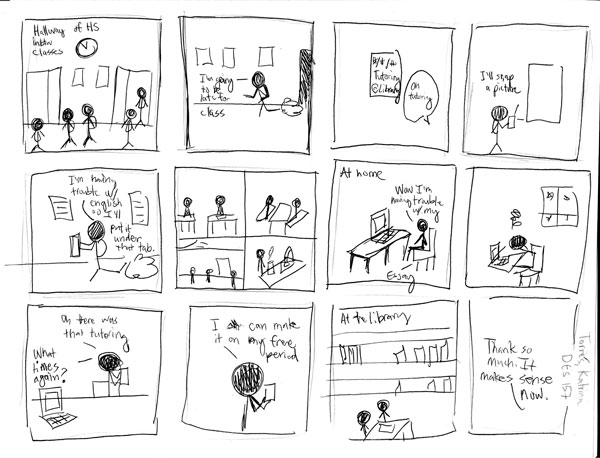 Hallway of HS
inbtw
classes
I'm going
to be
late for
class
Tutoring
@library
Oh
tutoring
I'll snap
a picture
I'm having
trouble w/
english
so I'll
put it
under
that tab.
At home
Wow I'm
having trouble
w/ my
Essay
Oh there was
that tutoring
What
times
again?
I can make
it on my free
period
At the library
Thank so
much. It
makes sense
now.
Torres, Katrina
DES 157